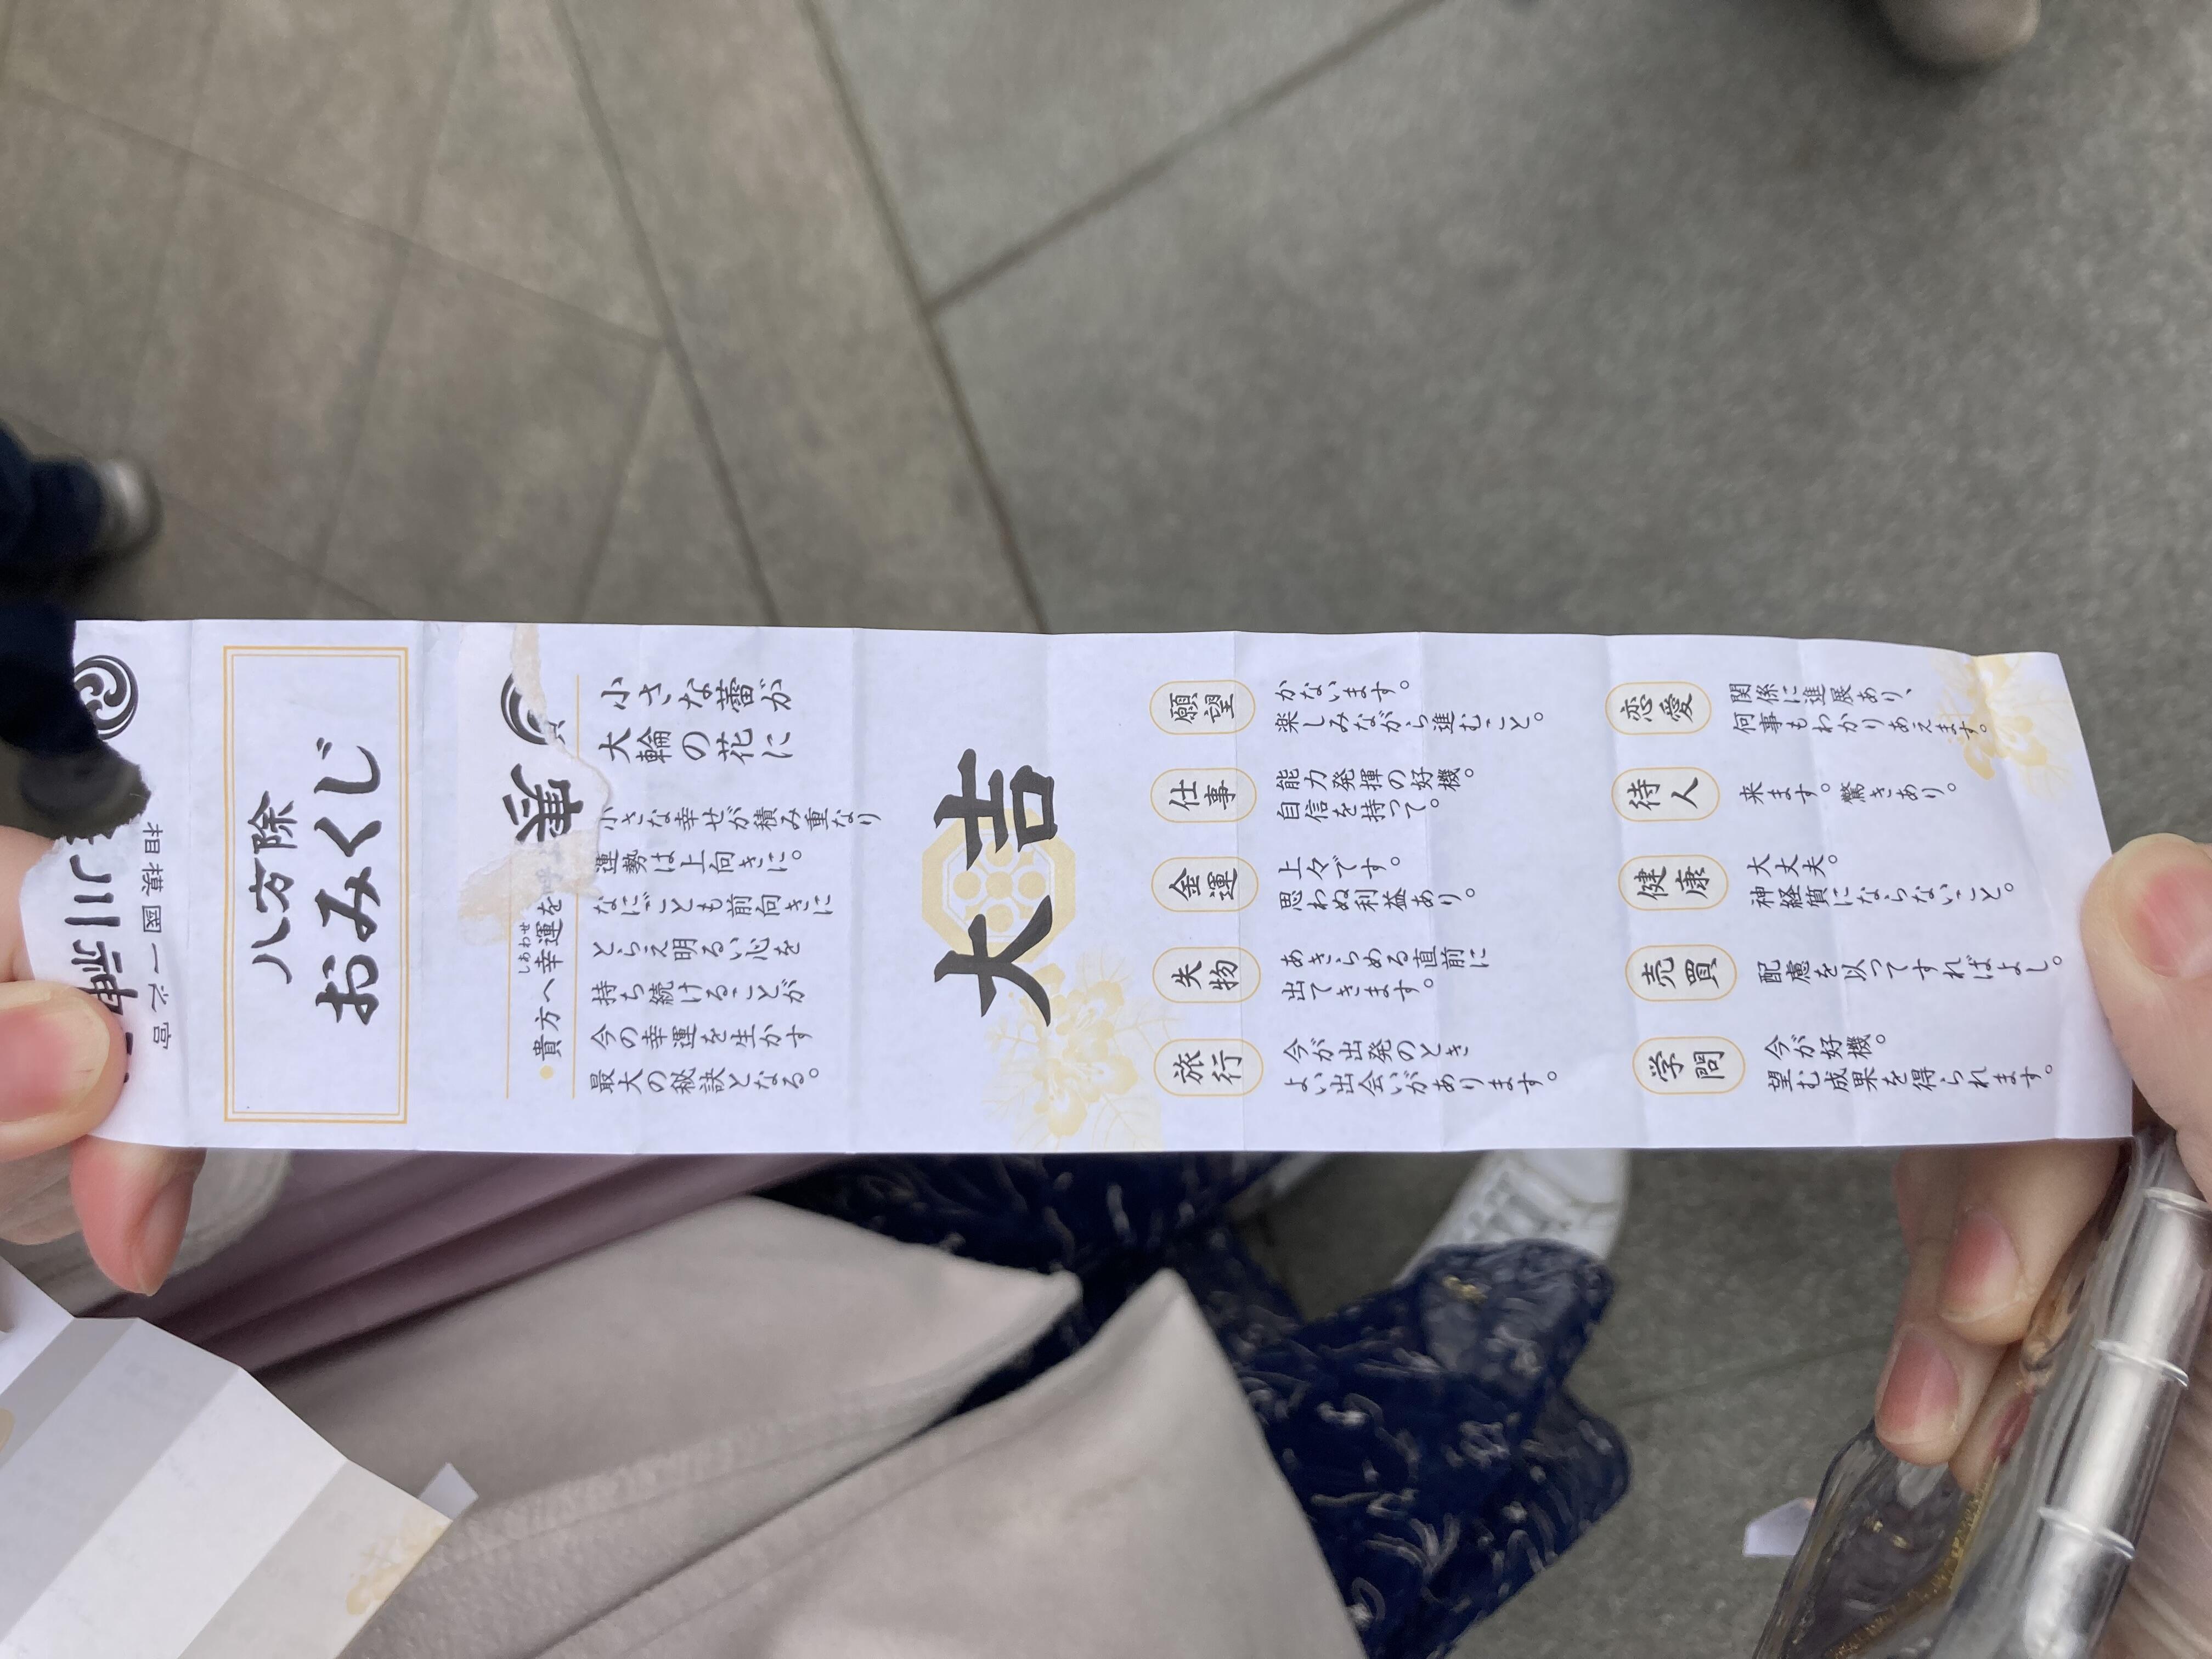 相模國一之宮
八方除
おみくじ
しあわせ
貴方へ幸運を
小さな蕾が
大輪の花に
小さな幸せが積み重なり
運勢は上向きに。
なにごとも前向きに
とらえ明るい心を
持ち続けることが
今の幸運を生かす
最大の秘訣となる。
大吉
願望
かないます。
楽しみながら進むこと。
仕事
能力発揮の好機。
自信を持って。
金運
上々です。
思わぬ利益あり。
失物
あきらめる直前に
出てきます。
旅行
今が出発のとき
よい出会いがあります。
恋愛
関係に進展あり、
何事もわかりあえます。
待人
来ます。驚きあり。
健康
大丈夫。
神経質にならないこと。
売買
配慮を以ってすればよし。
学問
今が好機。
望む成果を得られます。